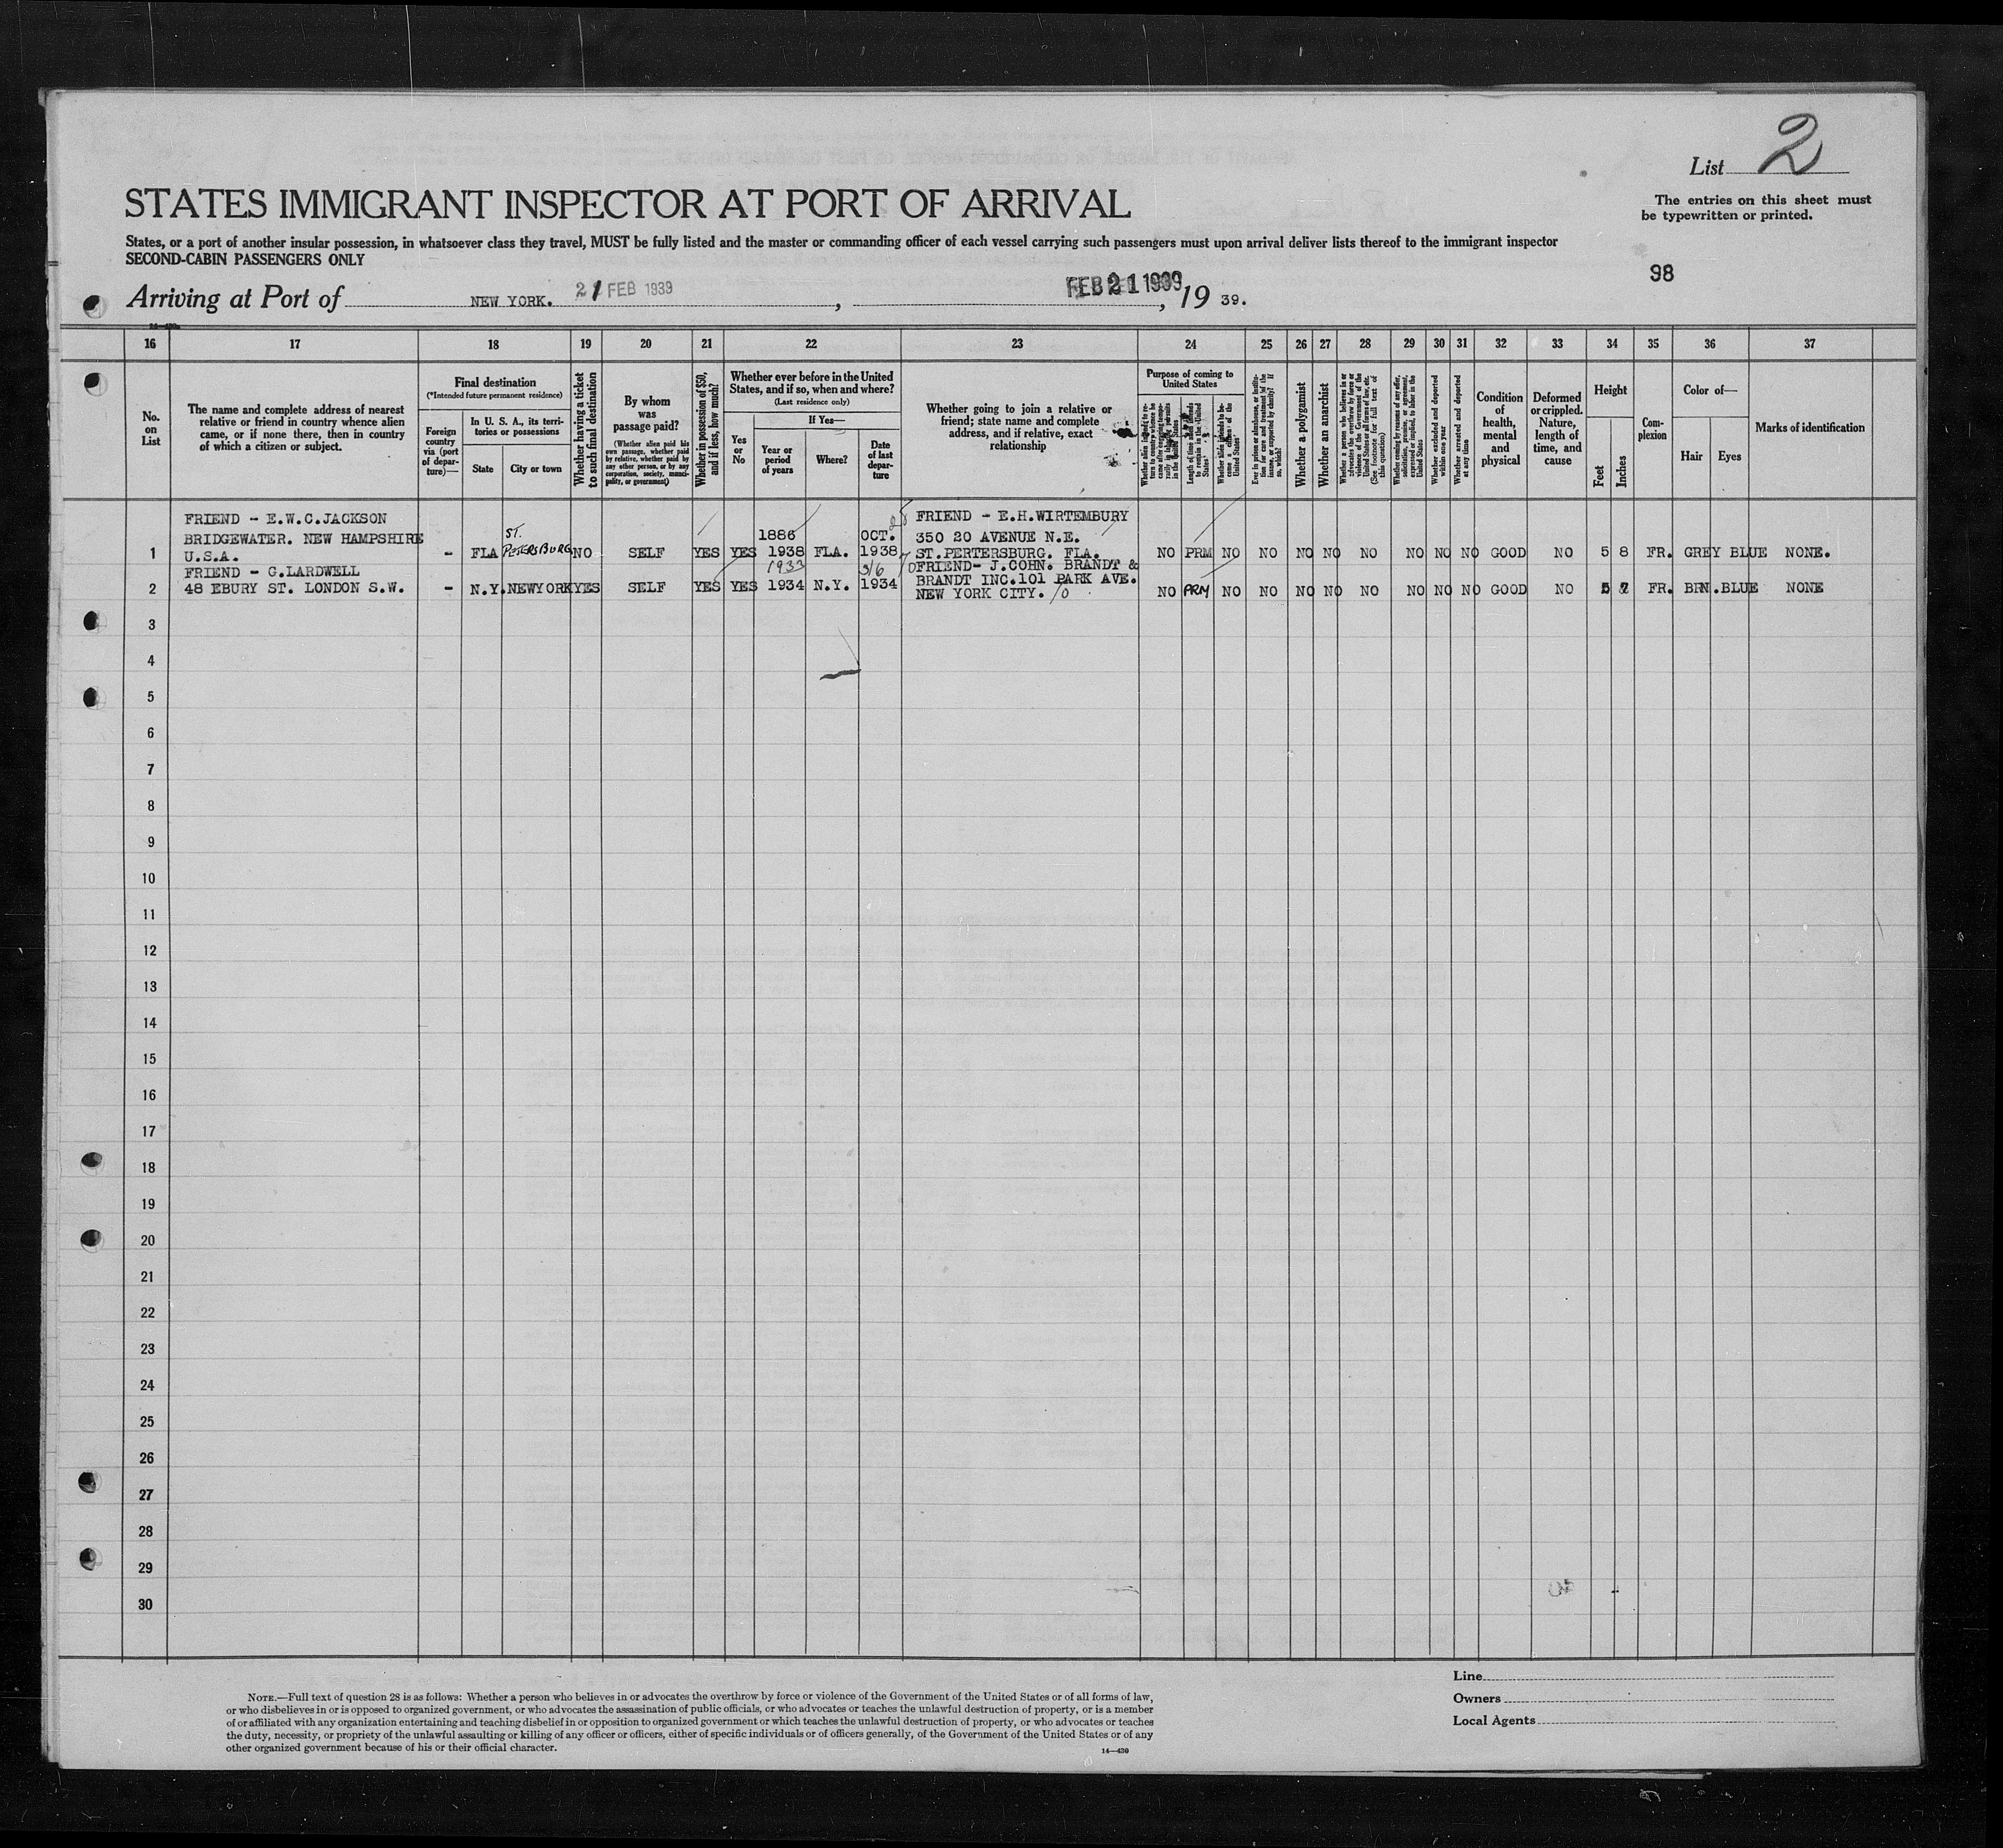 List 2
The entries on this sheet must
be typewritten or printed.
STATES IMMIGRANT INSPECTOR AT PORT OF ARRIVAL
States, or a port of another insular possession, in whatsoever class they travel, MUST be fully listed and the master or commanding officer of each vessel carrying such passengers must upon arrival deliver lists thereof to the immigrant inspector
SECOND-CABIN PASSENGERS ONLY
98
Arriving at Port of NEW YORK. 21 FEB 1939, FEB 21 1939, 19 39.
16 17 18 19 20 21 22 23 24 25 26 27 28 29 30 31 32 33 34 35 36 37
No.
on
List
The name and complete address of nearest
relative or friend in country whence alien
came, or if none there, then in country
of which a citizen or subject.
Final destination
(*Intended future permanent residence)
Foreign
country
via (port
of depar-
ture)—
In U. S. A., its terri-
tories or possessions
State
City or town
Whether having a ticket
to such final destination
By whom
was
passage paid?
(Whether alien paid his
own passage, whether paid
by relative, whether paid by
any other person, or by any
corporation, society, munici-
pality, or government)
Whether in possession of $50,
and if less, how much?
Whether ever before in the United
States, and if so, when and where?
(Last residence only)
Yes
or
No
If Yes—
Year or
period
of years
Where?
Date
of last
depar-
ture
Whether going to join a relative or
friend; state name and complete
address, and if relative, exact
relationship
Purpose of coming to
United States
Whether alien intends to re-
turn to country whence he
came after engaging tempo-
rarily in laboring pursuits
in the United States
Length of time alien intends
to remain in the United
States
Whether alien intends to be-
come a citizen of the
United States
Ever in prison or almshouse, or institu-
tion for care and treatment of the
insane, or supported by charity? If
so, which?
Whether a polygamist
Whether an anarchist
Whether a person who believes in or
advocates the overthrow by force or
violence of the Government of the
United States or all forms of law, etc.
(See footnote for full text of
this question)
Whether coming by reasons of any offer,
solicitation, promise, or agreement,
expressed or implied, to labor in the
United States
Whether excluded and deported
within one year
Whether arrested and deported
at any time
Condition
of
health,
mental
and
physical
Deformed
or crippled.
Nature,
length of
time, and
cause
Height
Feet
Inches
Com-
plexion
Color of—
Hair
Eyes
Marks of identification
FRIEND - E.W.C.JACKSON
BRIDGEWATER. NEW HAMPSHIRE
1 U.S.A. - FLA ST. PETERSBURG NO SELF YES YES 1886 1938 FLA. OCT. 1938
FRIEND - E.H.WIRTEMBURY
350 20 AVENUE N.E.
ST.PERTERSBURG. FLA. NO PRM NO NO NO NO NO NO NO NO GOOD NO 5 8 FR. GREY BLUE NONE.
FRIEND - G.LARDWELL
2 48 EBURY ST. LONDON S.W. - N.Y. NEWYORK YES SELF YES YES 1933 1934 N.Y. 3/6 1934
FRIEND- J.COHN. BRANDT &
BRANDT INC.101 PARK AVE.
NEW YORK CITY. 10 NO PRM NO NO NO NO NO NO NO NO GOOD NO 5 7 FR. BRN.BLUE NONE
3
4
5
6
7
8
9
10
11
12
13
14
15
16
17
18
19
20
21
22
23
24
25
26
27
28
29
30
Line
Owners
Local Agents
NOTE.—Full text of question 28 is as follows: Whether a person who believes in or advocates the overthrow by force or violence of the Government of the United States or of all forms of law,
or who disbelieves in or is opposed to organized government, or who advocates the assassination of public officials, or who advocates or teaches the unlawful destruction of property, or is a member
of or affiliated with any organization entertaining and teaching disbelief in or opposition to organized government or which teaches the unlawful destruction of property, or who advocates or teaches
the duty, necessity, or propriety of the unlawful assaulting or killing of any officer or officers, either of specific individuals or of officers generally, of the Government of the United States or of any
other organized government because of his or their official character.
14—430